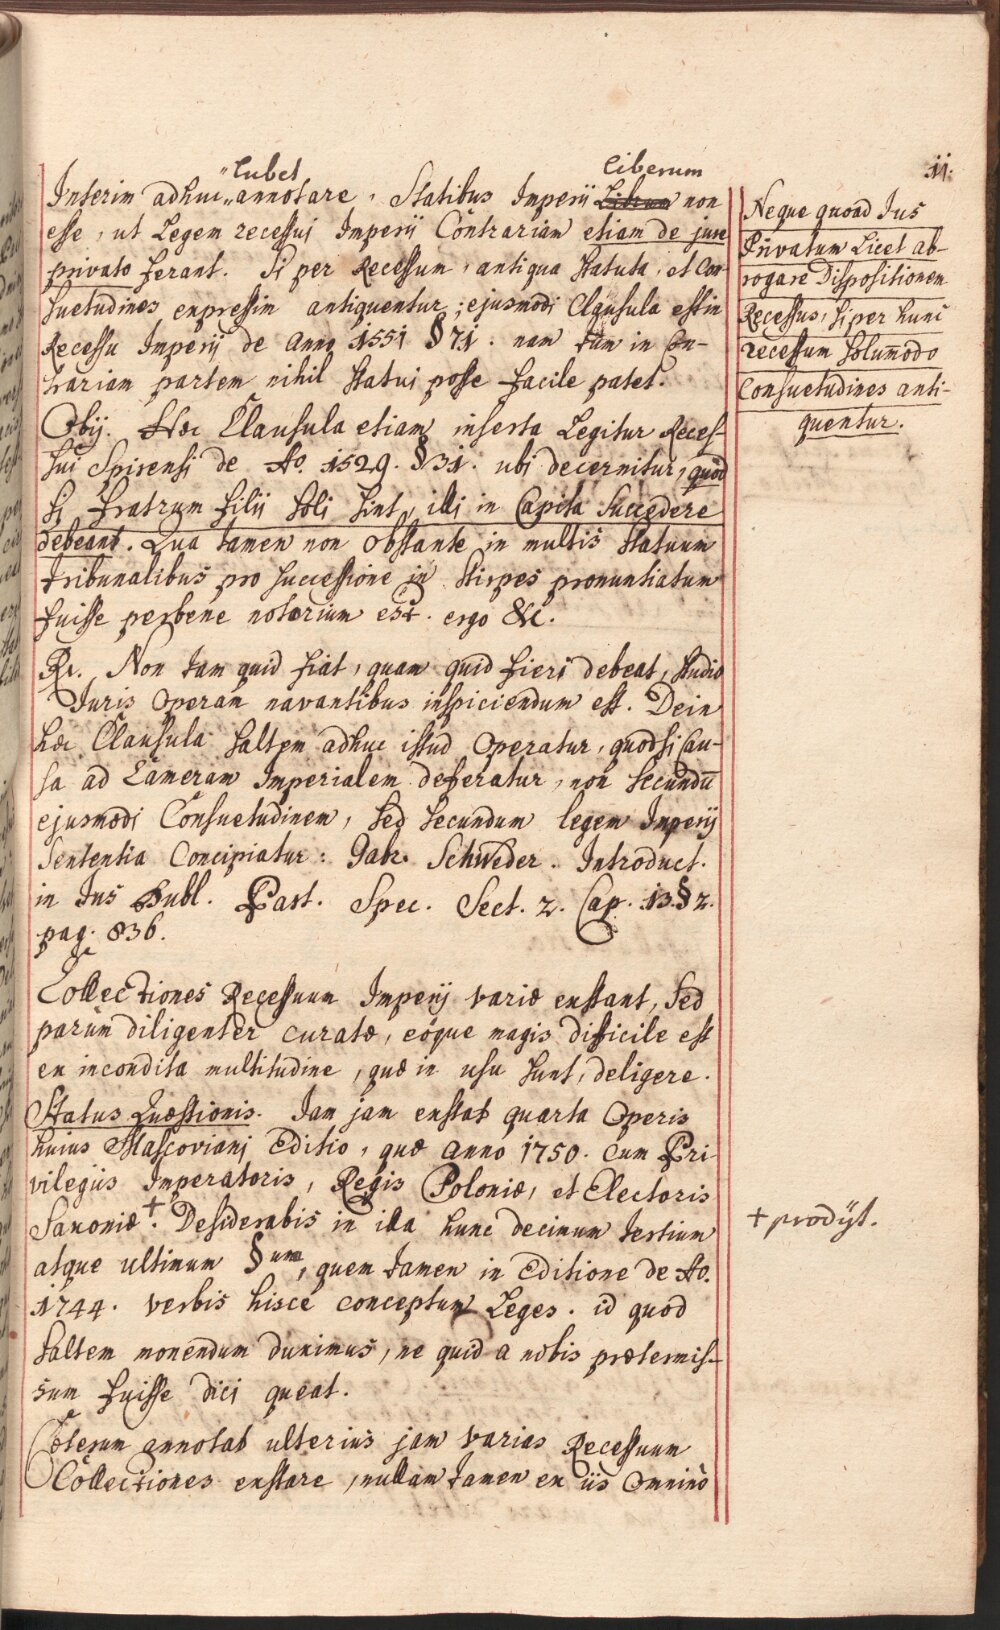 11.
lubet liberum
Interim adhuc annotare, Statibus Imperij Librum non
esse, ut Legem recessui Imperij Contrariam etiam de jure
privato ferant. Si per Recessum, antiqua Statuta, et Con-
suetudines expressim antiquentur; ejusmodi Clausula est in
Recessu Imperij de Anno 1551 § 71. nam tum in Con-
trariam partem nihil statui posse facile patet.
Obij. Hæc Clausula etiam inserta Legitur Reces-
sui Spirensi de Ao. 1529. § 31. ubi decernitur, quod
si fratrum filii soli sint, illi in Capita Succedere
debeant. Qua tamen non obstante in multis statuum
tribunalibus pro successione in stirpes pronuntiatum
fuisse perbene notorium est. ergo &c.
Rx. Non tam quid fiat, quam quid fieri debeat, studio
Juris Operam navantibus inspiciendum est. Dein
hæc Clausula saltem adhuc istud Operatur, quod si Cau-
sa ad Cameram Imperialem deferatur, non secundū
ejusmodi Consuetudinem, sed secundum legem Imperij
Sententia Concipiatur: Gabr. Schweder. Introduct.
in Jus Publ. Part. Spec. Sect. 2. Cap. 13. § 2.
pag. 836.
Collectiones Recessuum Imperij variæ exstant, sed
parùm diligenter curatæ, eóque magis difficile est
ex incondita multitudine, quæ in usu sunt, deligere.
Status Quæstionis. Jam jam exstat quarta Operis
huius Mascoviani Editio, quæ anno 1750. cum Pri-
vilegiis Imperatoris, Regis Poloniæ, et Electoris
Saxoniæ +. Desiderabis in illa hunc decimum tertium
atque ultimum §um, quem tamen in Editione de Ao.
1744. verbis hisce conceptum Leges. id quod
saltem monendum duximus, ne quid a nobis prætermis-
sum fuisse dici queat.
Cæterum annotat ulterius jam varias Recessuum
Collectiones exstare, nullam tamen ex iis Omninò
Neque quoad Jus
Privatum Licet ab-
rogare Dispositionem
Recessus, si per hunc
recessum solum̄odo
Consuetudines anti-
quentur.
+ prodijt.